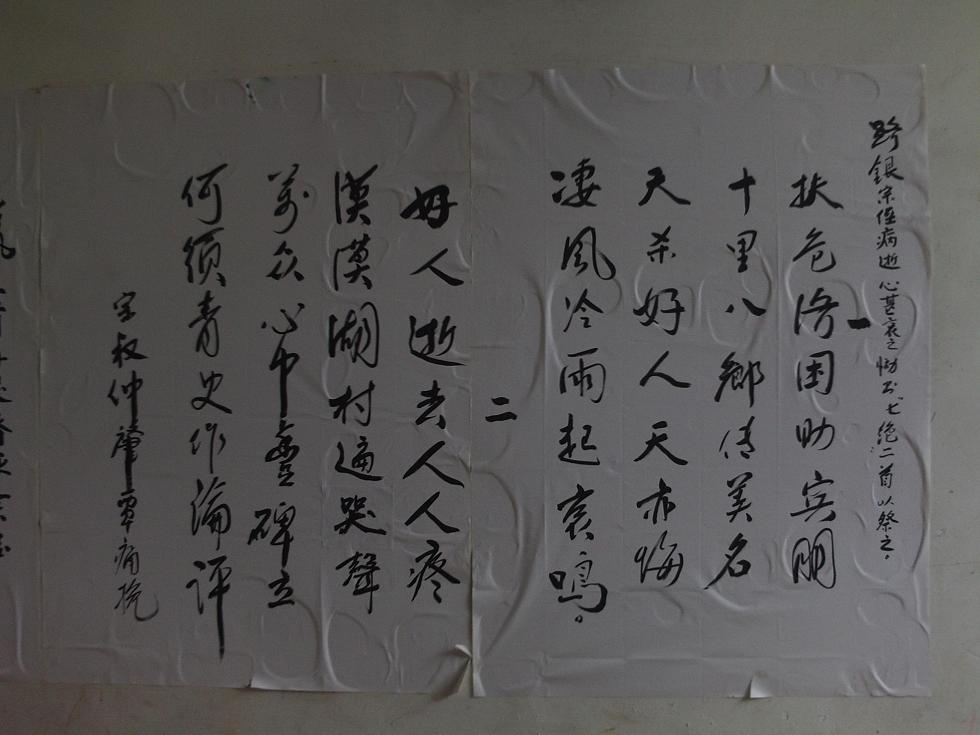 野銀宗侄病逝心甚哀之 七绝二首以祭之。
一
扶危济困助宾朋
十里八鄉传美名
天杀好人天亦悔
凄風冷雨起哀鳴。
二
好人逝去人人疼
漠漠湖村遍哭聲
萬众心中豐碑立
何须青史作論评
宗叔仲肇覃痛挽